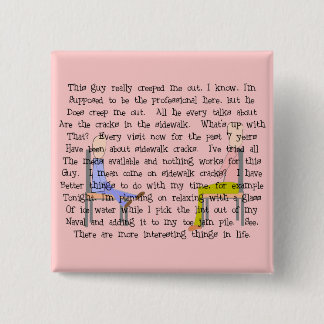 This guy really creeped me out. I know, I'm
Supposed to be the professional here, but he
Does creep me out.  All he every talks about
Are the cracks in the sidewalk.  What's up with
That?  Every visit now for the past 7 years
Have been about sidewalk cracks.  I've tried all
The meds available and nothing works for this
Guy.  I mean come on sidewalk cracks?  I have
Better things to do with my time, for example
Tonight, I'm planning on relaxing with a glass
Of ice water while I pick the lint out of my
Naval and adding it to my toe jam pile.  See,
There are more interesting things in life.